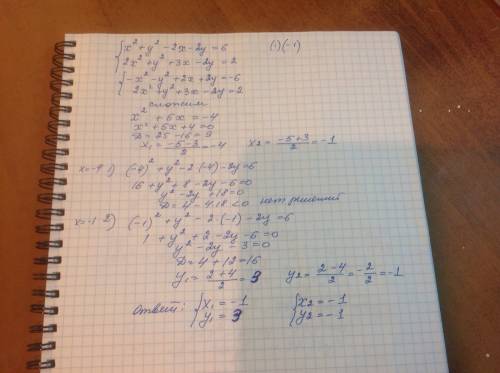 x² + y² - 2x - 2y = 6 (1)(-1)
2x² + y² + 3x - 2y = 2
-x² - y² + 2x + 2y = -6
2x² + y² + 3x - 2y = 2
сложим
x² + 5x = -4
x² + 5x + 4 = 0
D = 25 - 16 = 9
x₁ = (-5-3)/2 = -4 x₂ = (-5+3)/2 = -1
x=-4 1) (-4)² + y² - 2·(-4) - 2y = 6
16 + y² + 8 - 2y - 6 = 0
y² - 2y + 18 = 0
D = 4 - 4·18 < 0 нет решений
x=-1 2) (-1)² + y² - 2·(-1) - 2y = 6
1 + y² + 2 - 2y - 6 = 0
y² - 2y - 3 = 0
D = 4 + 12 = 16
y₁ = (2+4)/2 = 3 y₂ = (2-4)/2 = -2/2 = -1
ответ: x₁ = -1 x₂ = -1
y₁ = 3 y₂ = -1